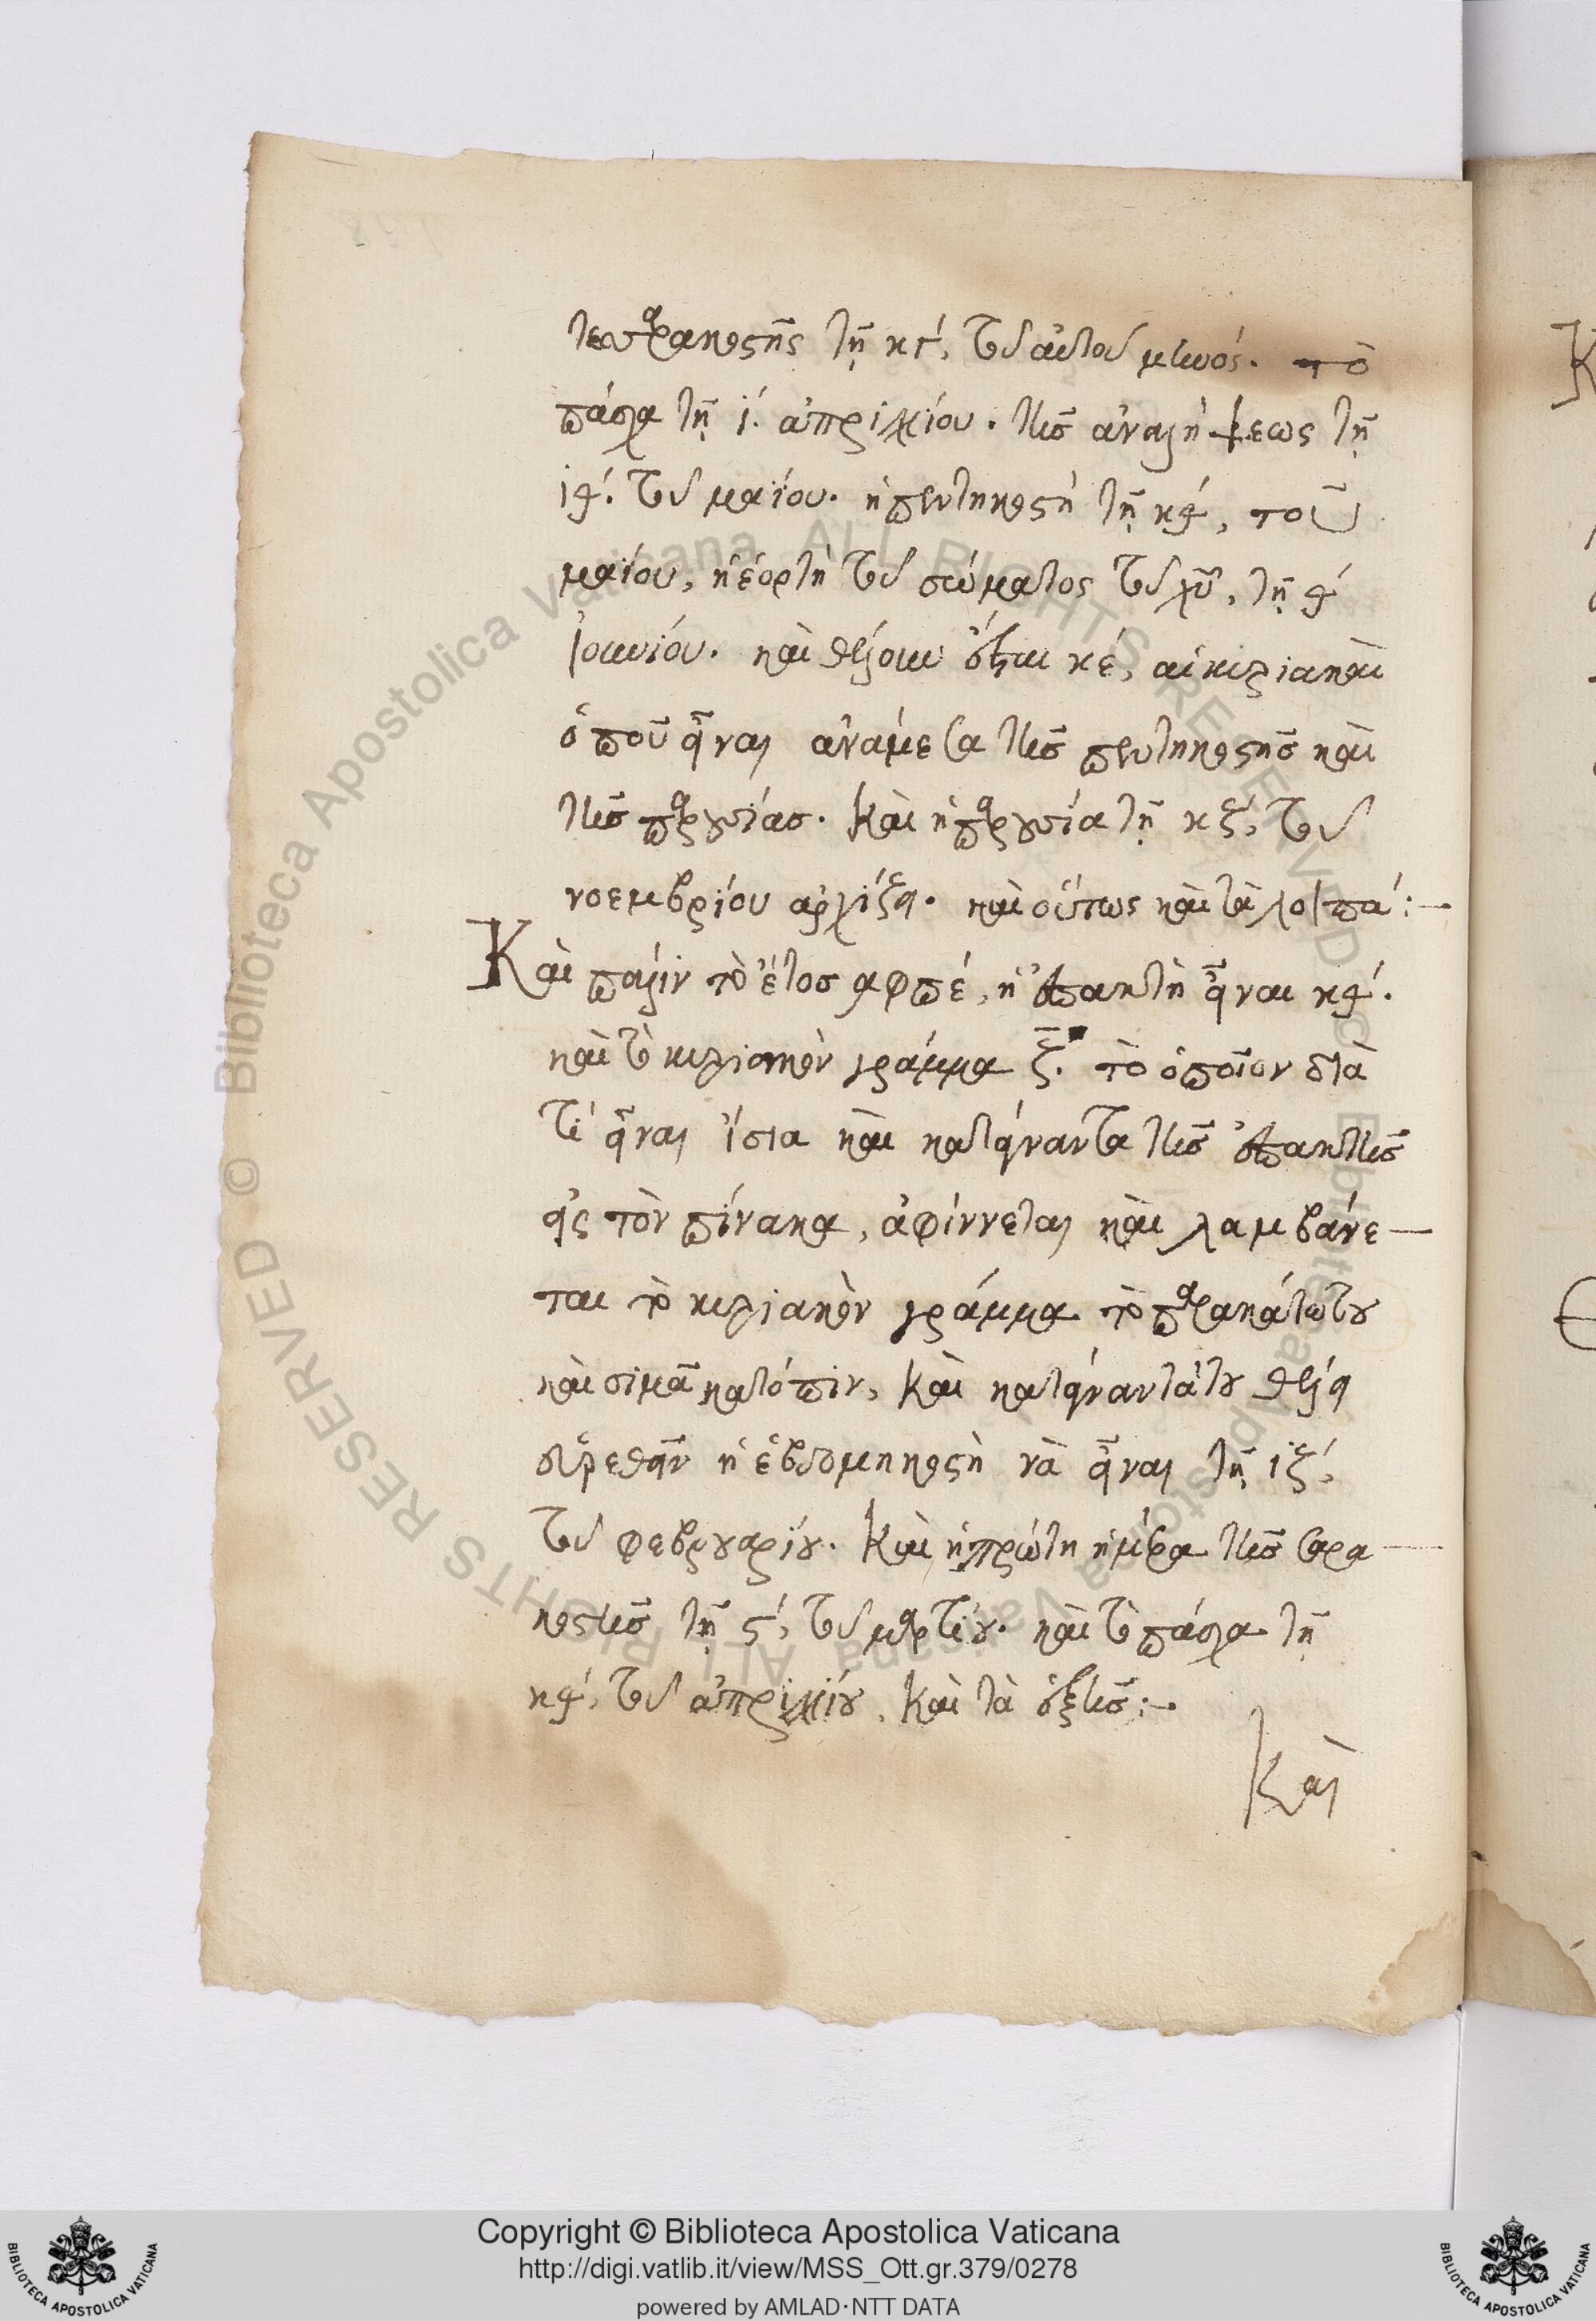 τεσσαρακοστῆς τῇ κγ΄, τοῦ αὐτοῦ μηνός. τὸ
πάσχα τῇ ί. ἀπριλλίου. τῆς ἀναλήψεως τῇ
ιθ΄. τοῦ μαΐου. ἡ πεντηκοστὴ τῇ κθ΄, τοῦ
μαΐου, ἡ ἑορτὴ τοῦ σώματος τοῦ χῦ, τῇ θ΄
ἰουνίου. καὶ θέλουν εἶσται κέ, αἱ κυριακαὶ
ὁποῦ εἶναι ἀνάμεσα τῆς πεντηκοστῆς καὶ
τῆς παρουσίας. Καὶ ἡ παρουσία τῇ κζ΄, τοῦ
νοεμβρίου ἀρχίζει. καὶ οὕτως καὶ τὰ λοιπά:—
Καὶ πάλιν τὸ ἔτος αφπέ, ἡ ἐπακτὴ εἶναι κθ΄.
καὶ τὸ κυριακὸν γράμμα ζ. τὸ ὁποῖον διὰ
τί εἶναι ἴσια καὶ κατείναντα τῆς ἐπακτῆς
εἰς τὸν πίνακα, ἀφίννεται καὶ λαμβάνε—
ται τὸ κυριακὸν γράμμα τὸ παρακάτω του
καὶ σιμᾶ κατόπιν, Καὶ κατείναντά του θέλει
εὑρεθεῖν ἡ ἑβδομηκοστὴ νὰ εἶναι τῇ ιζ΄,
τοῦ φεβρουαρίου. Καὶ ἡ πρώτη ἡμέρα τῆς σαρα—
κοστῆς τῇ ς΄, τοῦ μαρτίου. καὶ τὸ πάσχα τῇ
κθ΄, τοῦ ἀπριλλίου, Καὶ τὰ ἑξῆς:—.
Καὶ
Copyright © Biblioteca Apostolica Vaticana
http://digi.vatlib.it/view/MSS_Ott.gr.379/0278
powered by AMLAD·NTT DATA